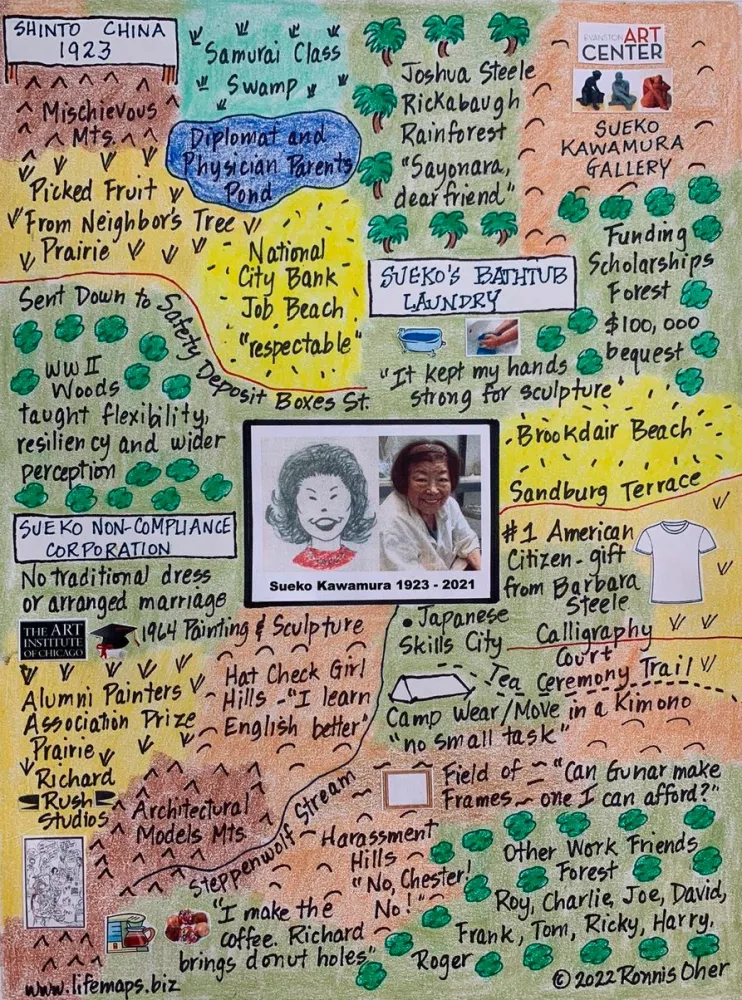 SHINTO CHINA
1923
Mischievous
Mts.
Samurai Class
Swamp
Diplomat and
Physician Parents
Pond
Picked Fruit
From Neighbor's Tree
Prairie
Joshua Steele
Rickabaugh
Rainforest
"Sayonara,
dear friend"
EVANSTON ART
CENTER
SUEKO
KAWAMURA
GALLERY
National
City Bank
Job Beach
"respectable"
Sent Down to Safety Deposit Boxes St.
SUEKO'S BATHTUB
LAUNDRY
"It kept my hands
strong for sculpture"
Funding
Scholarships
Forest
$100,000
bequest
WWII
Woods
taught flexibility,
resiliency and wider
perception
Brookdair Beach
Sandburg Terrace
SUEKO NON-COMPLIANCE
CORPORATION
No traditional dress
or arranged marriage
THE ART
INSTITUTE
OF CHICAGO
1964 Painting & Sculpture
Sueko Kawamura 1923 - 2021
#1 American
Citizen - gift
from Barbara
Steele
• Japanese
Skills City
Calligraphy
Court
Tea Ceremony Trail
Camp Wear/Move in a Kimono
"no small task"
Alumni Painters
Association Prize
Prairie
Hat Check Girl
Hills - "I learn
English better"
Richard
Rush
Studios
Architectural
Models Mts
Steppenwolf Stream
Field of "Can Gunar make
Frames - one I can afford?"
Harassment
Hills
"No, Chester!
No!"
Other Work Friends
Forest
Roy, Charlie, Joe, David,
Frank, Tom, Ricky, Harry,
Roger
"I make the
coffee. Richard
brings donut holes"
www.lifemaps.biz
© 2022 Ronnis Oher